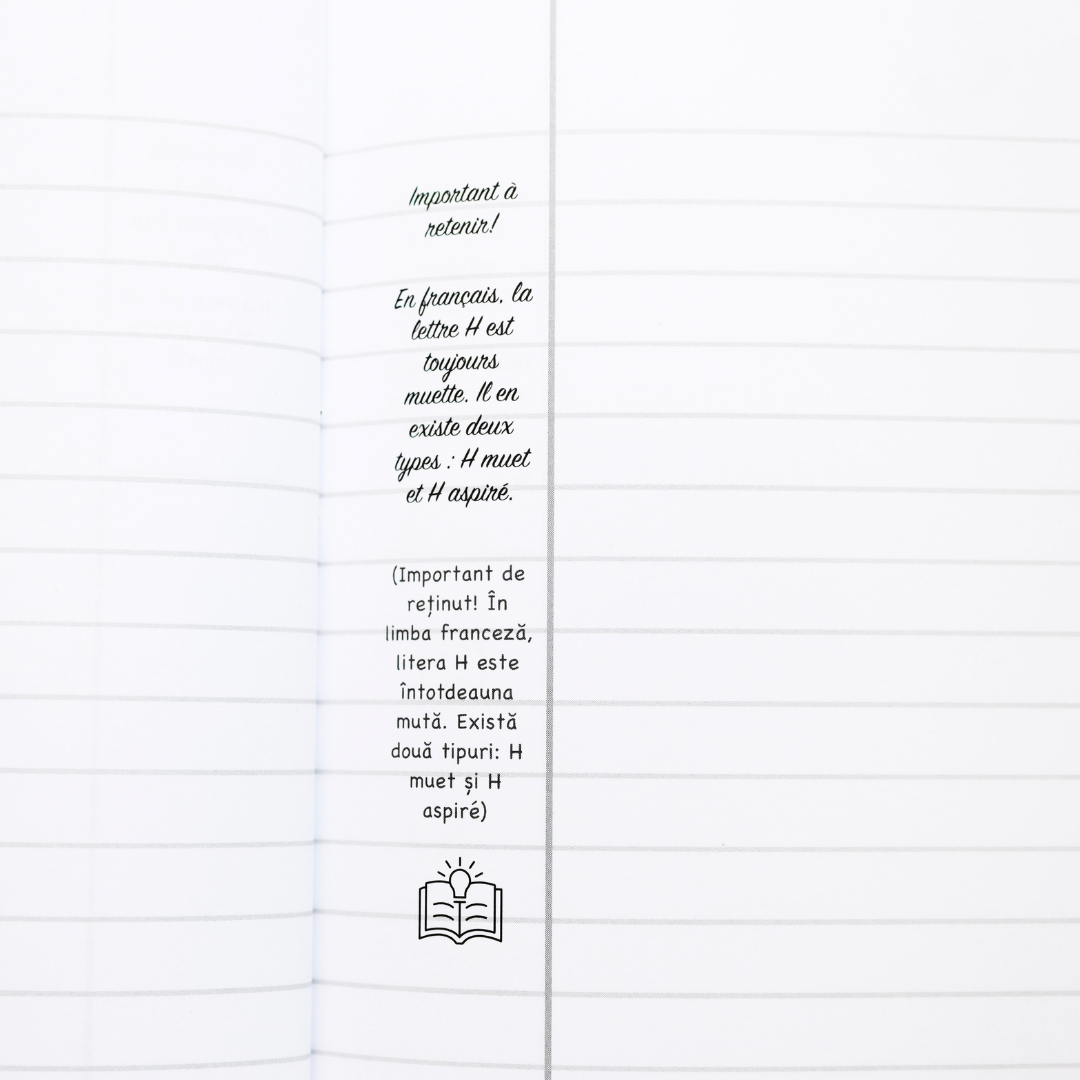 Important à
retenir!
En français, la
lettre H est
toujours
muette. Il en
existe deux
types : H muet
et H aspiré.
(Important de
reținut! În
limba franceză,
litera H este
întotdeauna
mută. Există
două tipuri: H
muet și H
aspiré)